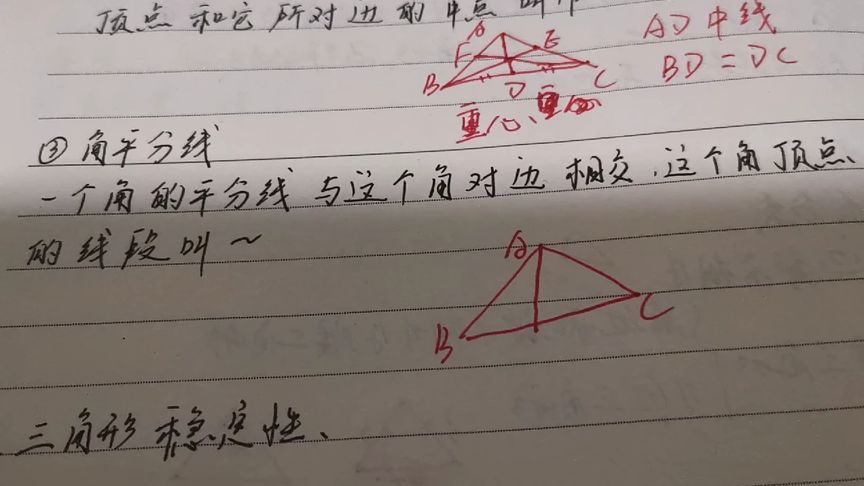 顶点和它所对边的中点叫
A
E
AD中线
F
BD=DC
B
D
C
重心、重心
③角平分线
一个角的平分线与这个角对边相交,这个角顶点
的线段叫~
A
B
C
三角形稳定性、